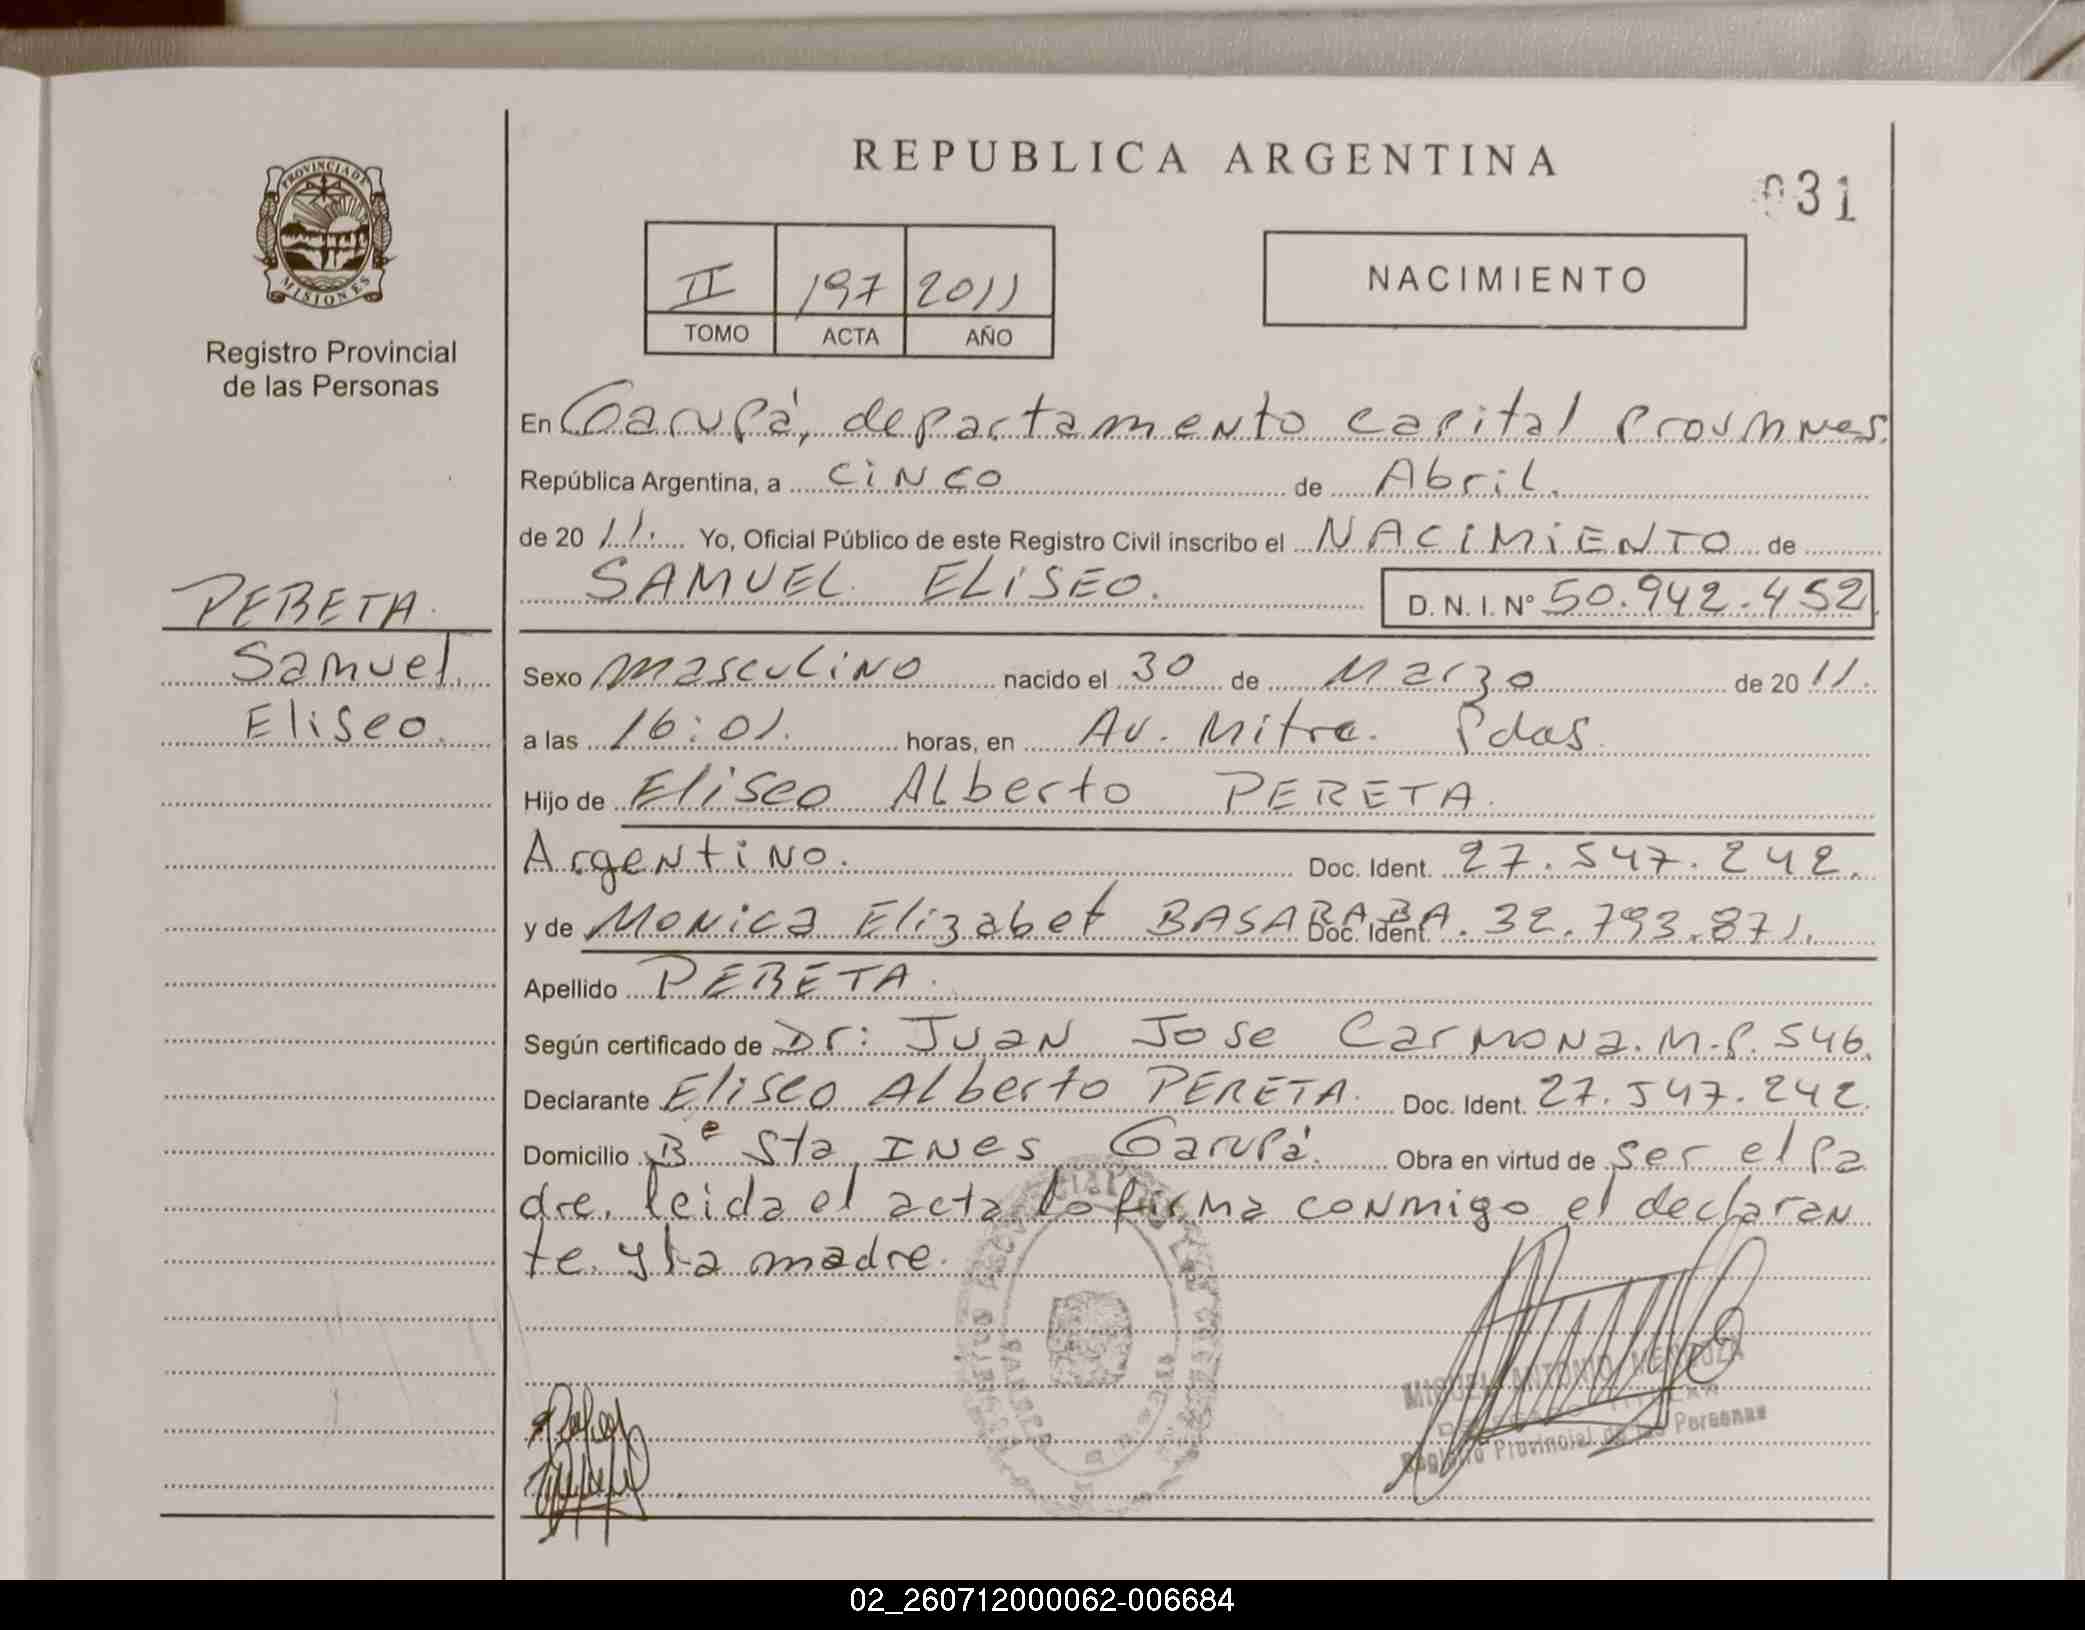 REPUBLICA ARGENTINA
031
PROVINCIA DE
MISIONES
Registro Provincial
de las Personas
II 197 2011
TOMO ACTA AÑO
NACIMIENTO
En Garupá, departamento capital Prov Mnes.
República Argentina, a cinco de Abril.
de 20 11. Yo, Oficial Público de este Registro Civil inscribo el NACIMIENTO de
SAMUEL ELISEO. D. N. I. Nº 50.942.452
PERETA.
Samuel
Eliseo.
Sexo masculino nacido el 30 de Marzo de 20 11.
a las 16:01. horas, en Av. Mitre. Pdas.
Hijo de Eliseo Alberto PERETA.
Argentino. Doc. Ident. 27.547.242.
y de Monica Elizabet BASARABA. Doc. Ident. 32.793.871.
Apellido PERETA.
Según certificado de Dr: Juan Jose Carmona. M.P. 546.
Declarante Eliseo Alberto PERETA. Doc. Ident. 27.547.242.
Domicilio Bº Sta INES Garupá. Obra en virtud de ser el pa
dre. leida el acta la firma conmigo el declaran
te. y la madre.
MIGUEL ANTONIO MENDOZA
Registro Provincial de las Personas
02_260712000062-006684